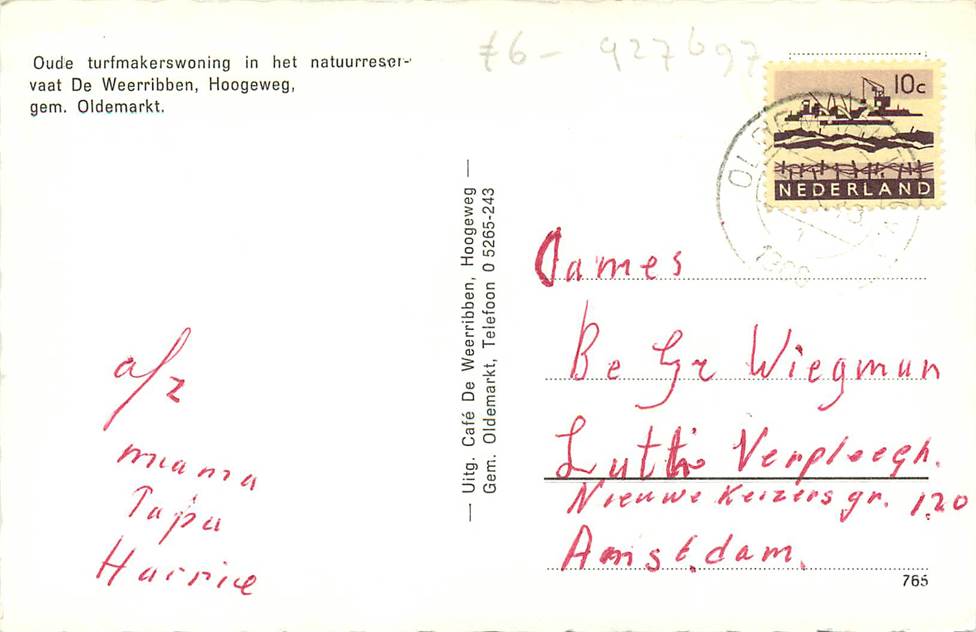 Oude turfmakerswoning in het natuurreser-
vaat De Weerribben, Hoogeweg,
gem. Oldemarkt.
£6- 927697
10c
NEDERLAND
— Uitg. Café De Weerribben, Hoogeweg —
Gem. Oldemarkt, Telefoon 05265-243
Dames
Be Gr Wiegman
Lutth Verpleegh.
Nieuwe Keizersgr. 120
Amsterdam.
a/z
mama
Papa
Harrie
765